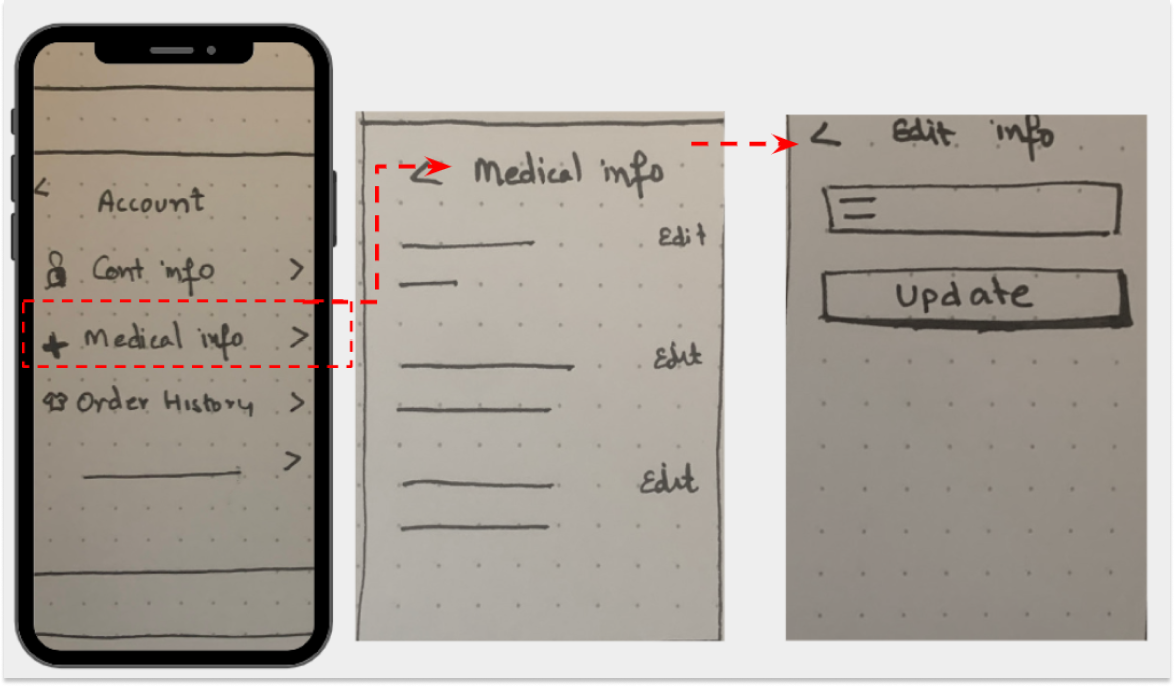 Account
Cont info
Medical info
Order History
Medical info
Edit
Edit
Edit
Edit info
Update